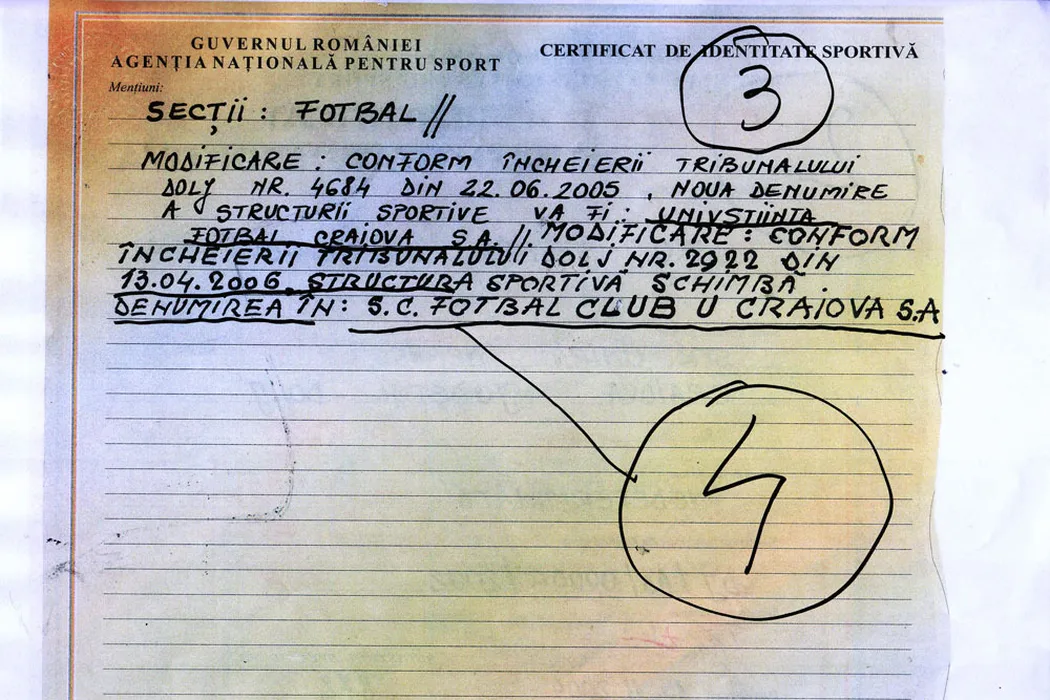 GUVERNUL ROMÂNIEI
AGENȚIA NAȚIONALĂ PENTRU SPORT
CERTIFICAT DE IDENTITATE SPORTIVĂ
3
Mențiuni:
SECȚII : FOTBAL //
MODIFICARE : CONFORM ÎNCHEIERII TRIBUNALULUI
DOLJ NR. 4684 DIN 22.06.2005 , NOUA DENUMIRE
A STRUCTURII SPORTIVE VA FI : UNIVȘTIINȚA
FOTBAL CRAIOVA S.A. //. MODIFICARE : CONFORM
ÎNCHEIERII TRIBUNALULUI DOLJ NR. 2922 DIN
13.04.2006, STRUCTURA SPORTIVĂ SCHIMBĂ
DENUMIREA ÎN: S.C. FOTBAL CLUB U CRAIOVA S.A
4